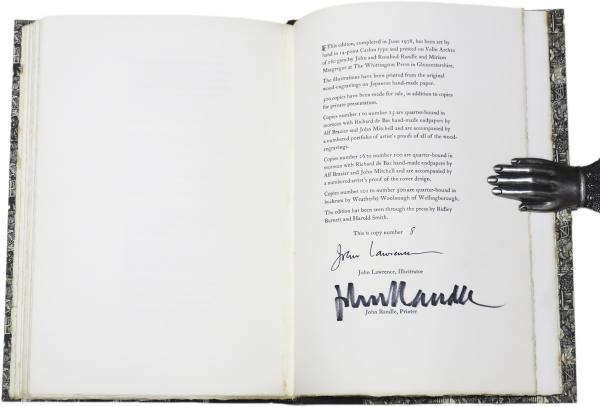 This edition, completed in June 1978, has been set by
hand in 14-point Caslon type and printed on Velin Arches
of 160 gsm by John and Rosalind Randle and Miriam
Macgregor at The Whittington Press in Gloucestershire.
The illustrations have been printed from the original
wood-engravings on Japanese hand-made paper.
500 copies have been made for sale, in addition to copies
for private presentation.
Copies number 1 to 25 are quarter-bound in
morocco with Richard de Bas hand-made endpapers by
Alf Brazier and John Mitchell and are accompanied by
a numbered portfolio of artist's proofs of all of the wood-
engravings.
Copies number 26 to 100 are quarter-bound in
morocco with Richard de Bas hand-made endpapers by
Alf Brazier and John Mitchell and are accompanied by
a numbered artist's proof of the cover design.
Copies number 101 to 500 are quarter-bound in
buckram by Weatherby Woolnough of Wellingborough.
The edition has been seen through the press by Ridley
Burnett and Harold Smith.
This is copy number 8
John Lawrence
John Lawrence, Illustrator
John Randle
John Randle, Printer